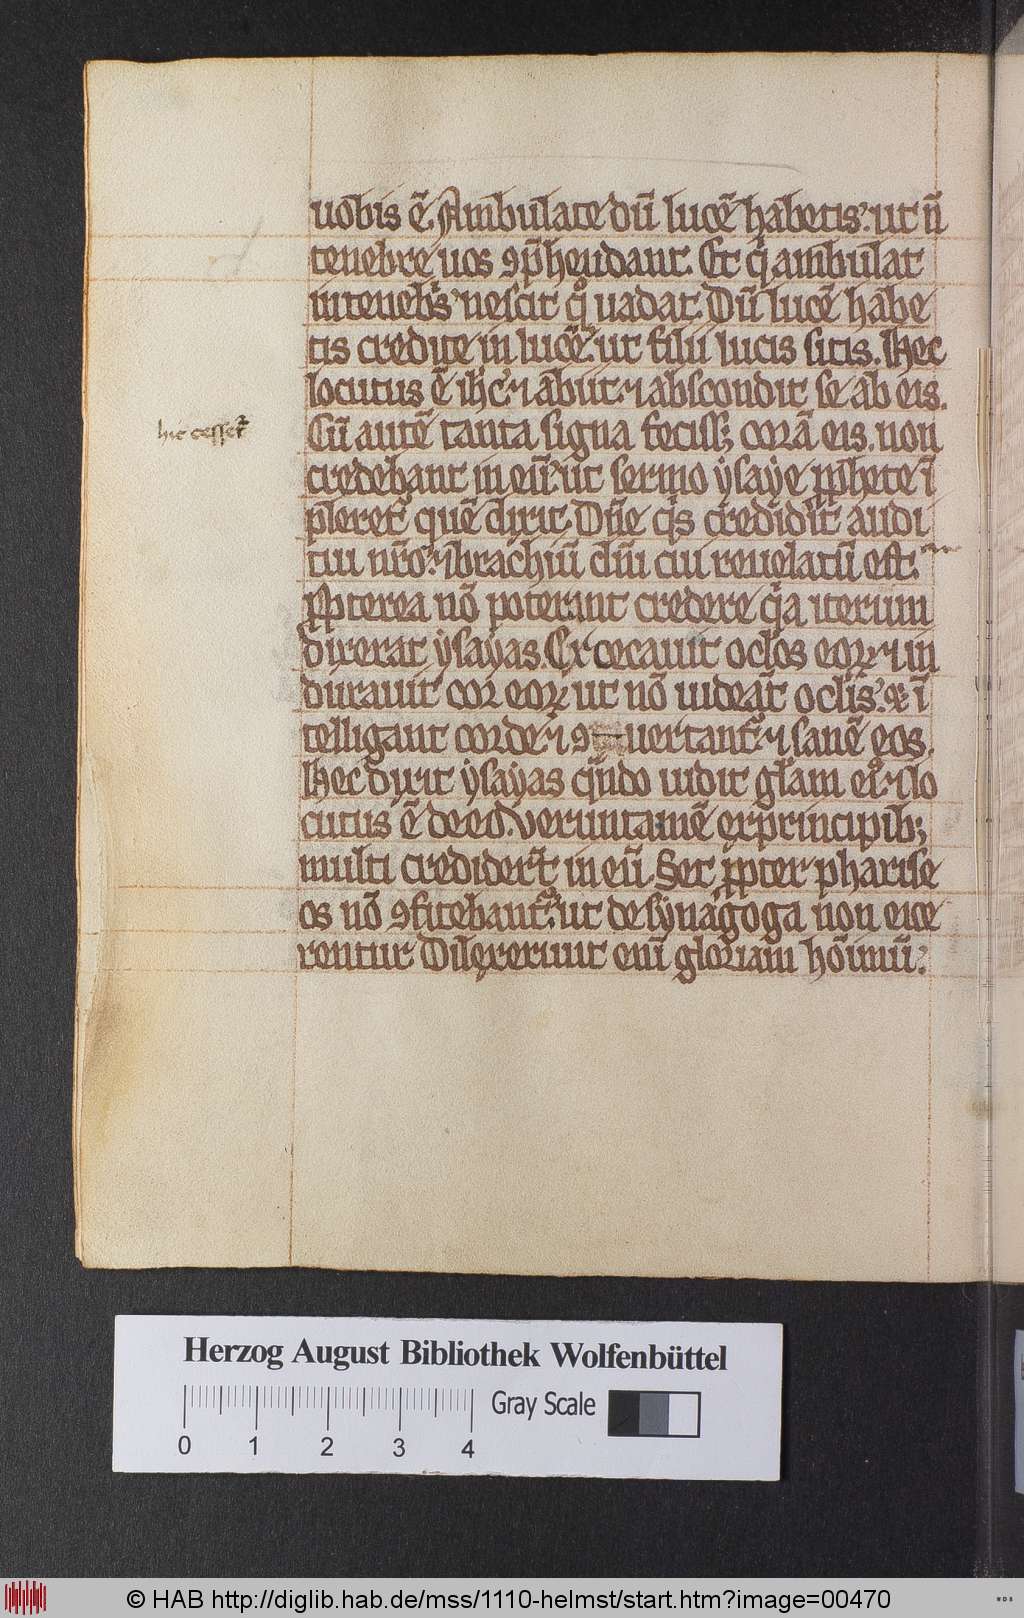 uobis ē. Ambulate dū lucē habetis. ut ñ
tenebre uos ꝯp̄hendant. Et q̇ ambulat
in tenebˢ nescit qͦ uadat. Dū lucē habe
tis credite in lucē. ut filii lucis sitis. Hec
locutus ē ih̄c. ⁊ abiit. ⁊ abscondit se ab eis.
hic cesset᷑
Cū autē tanta signa feciss; corā eis. non
credebant in eū. ut sermo ysaye ꝓphete ī
pleret᷑ quē dixit. Dn̄e q̇s credidit audi
tui nr̄o. ⁊ brachiū dn̄i cui reuelatū est.
Propterea nō poterant credere q̇a iterum
dixerat ysayas. Excecauit oclōs eoꝝ. ⁊ in
durauit cor eoꝝ ut nō uideāt oclīs. ⁊ ī
telligant corde. ⁊ ꝯuertant᷑. ⁊ sanē eos.
Hec dixit ysayas qn̄do uidit gl̄am ei᷒. ⁊ lo
cutus ē de eo. Veruntamē ex principib;
multi credider̄t in eū. Set ꝓpter pharise
os nō ꝯfitebant᷑. ut de synagoga non eice
rentur. Dilexerunt enī gloriam hoīnū.
Herzog August Bibliothek Wolfenbüttel
Gray Scale
0 1 2 3 4
© HAB http://diglib.hab.de/mss/1110-helmst/start.htm?image=00470